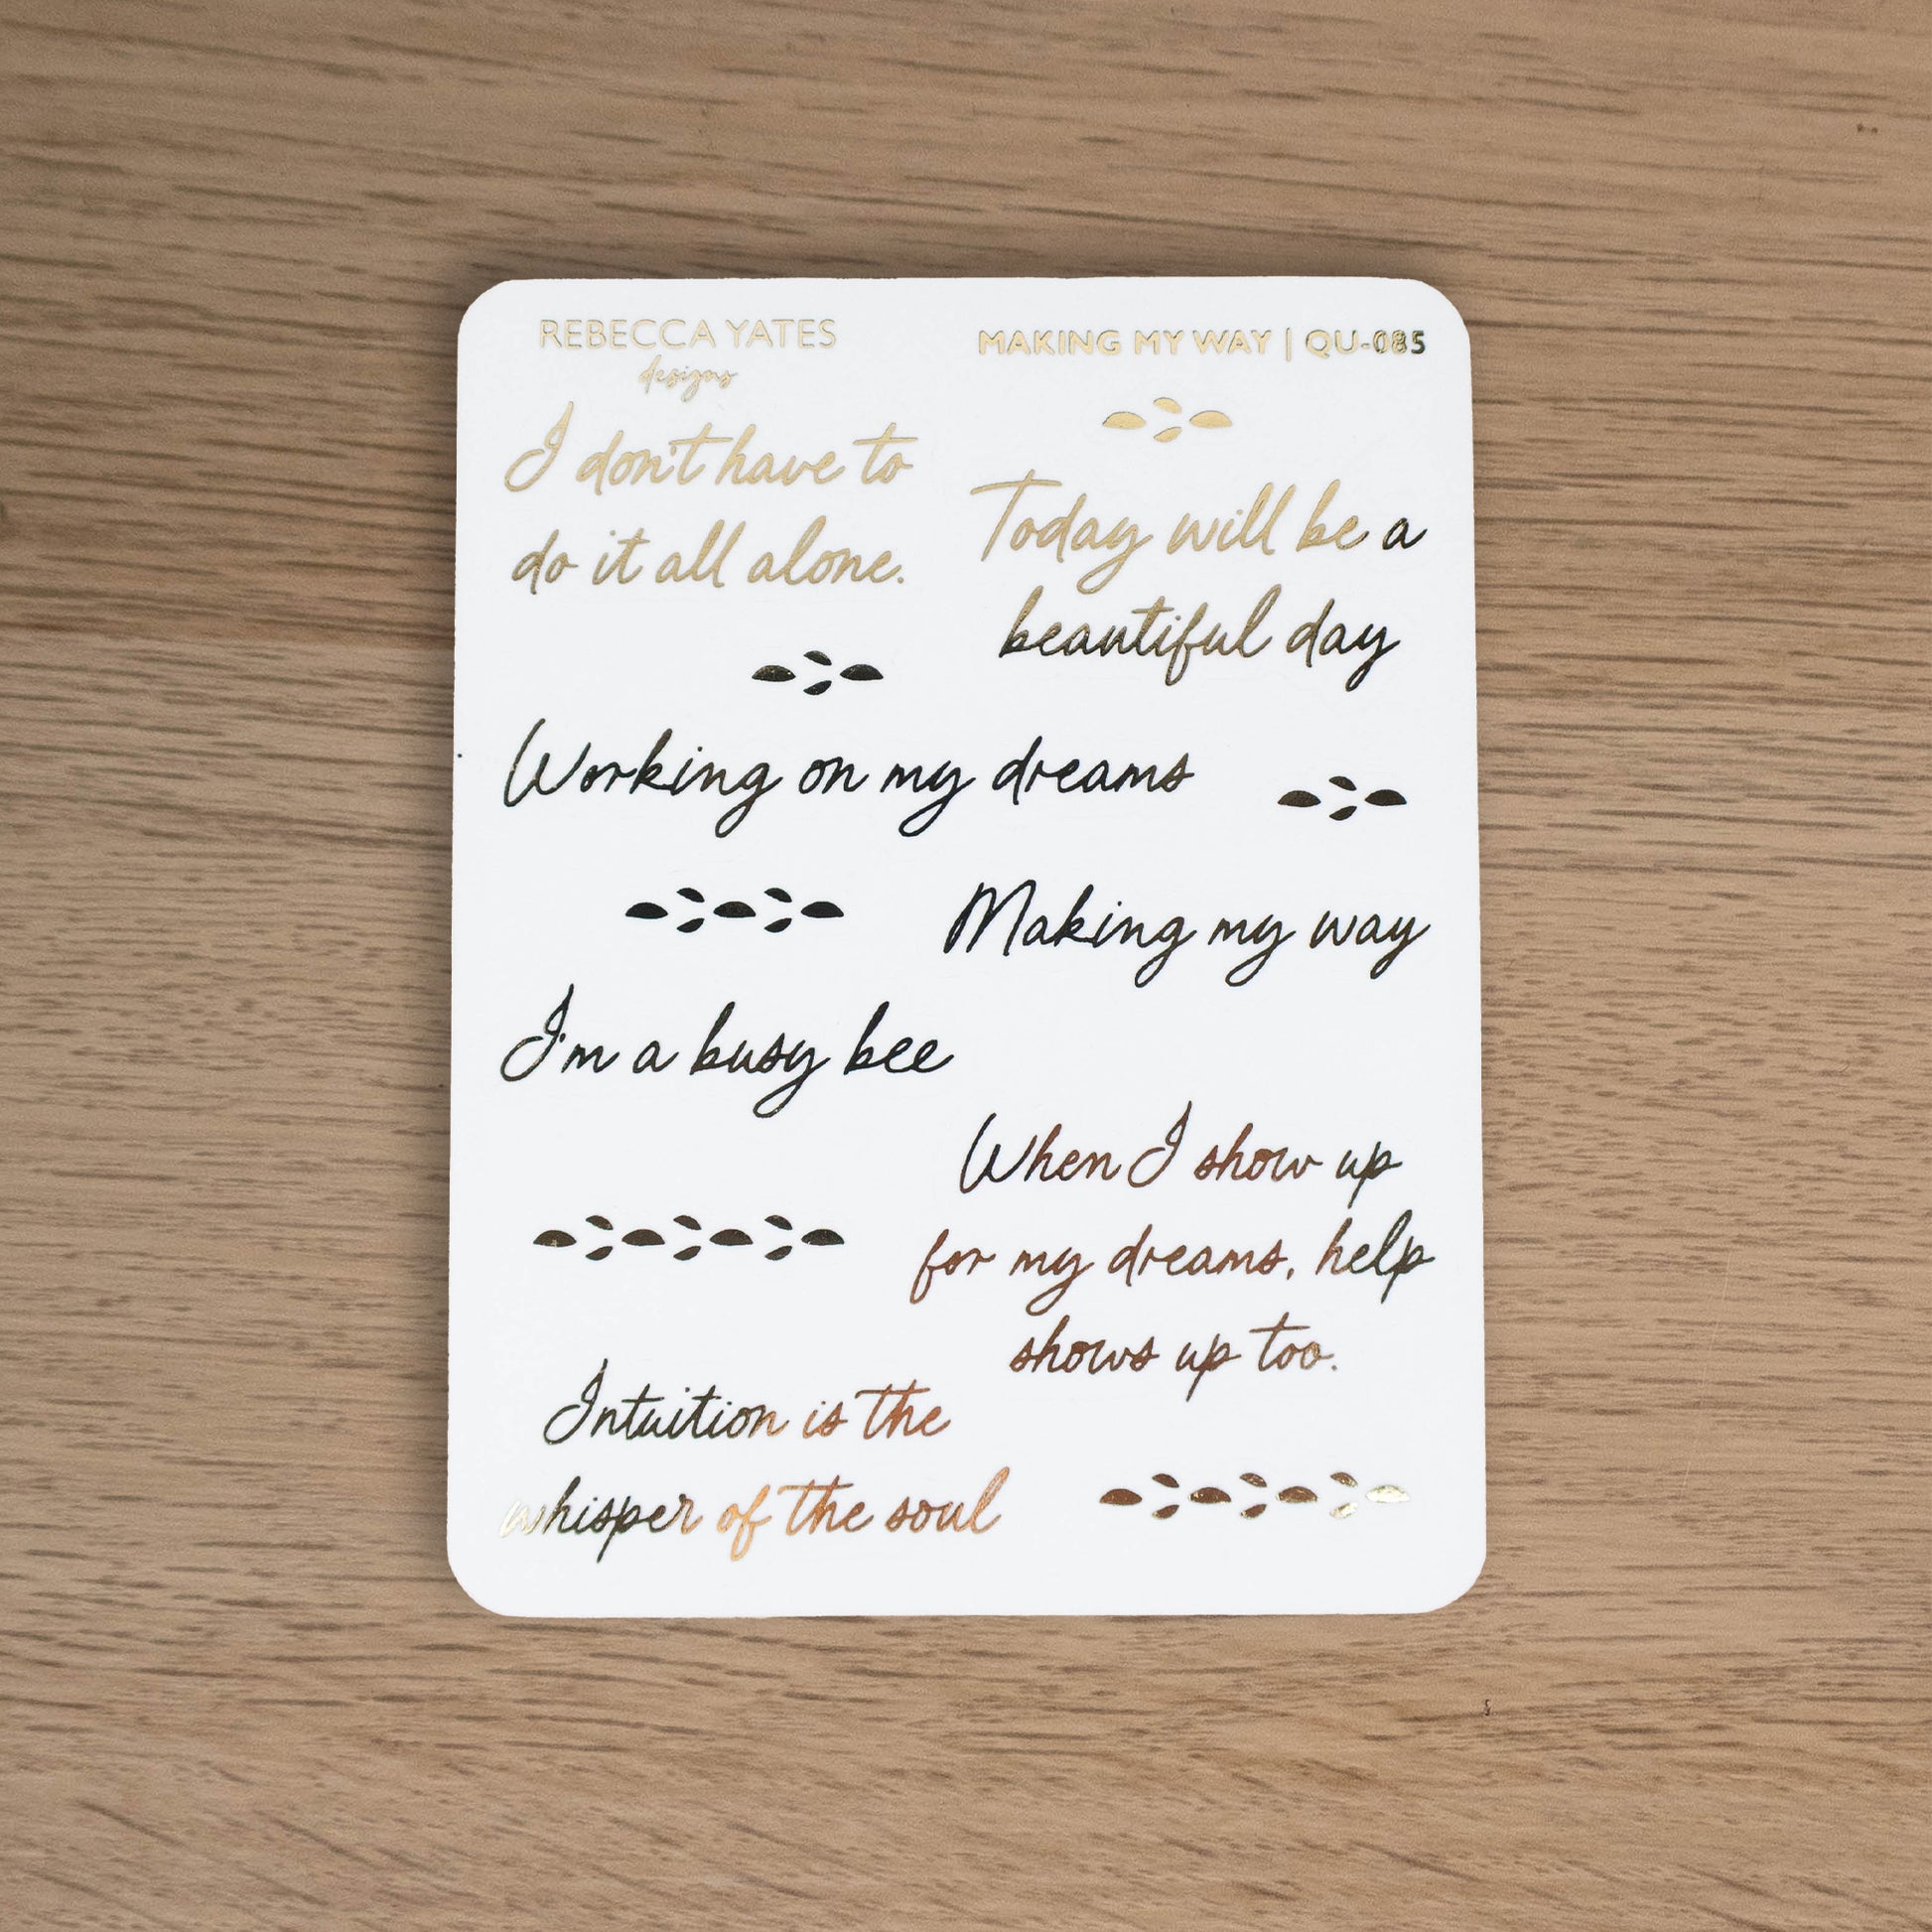 REBECCA YATES
designs
MAKING MY WAY | QU-085
I don't have to
do it all alone.
Today will be a
beautiful day
Working on my dreams
Making my way
I'm a busy bee
When I show up
for my dreams, help
shows up too.
Intuition is the
whisper of the soul